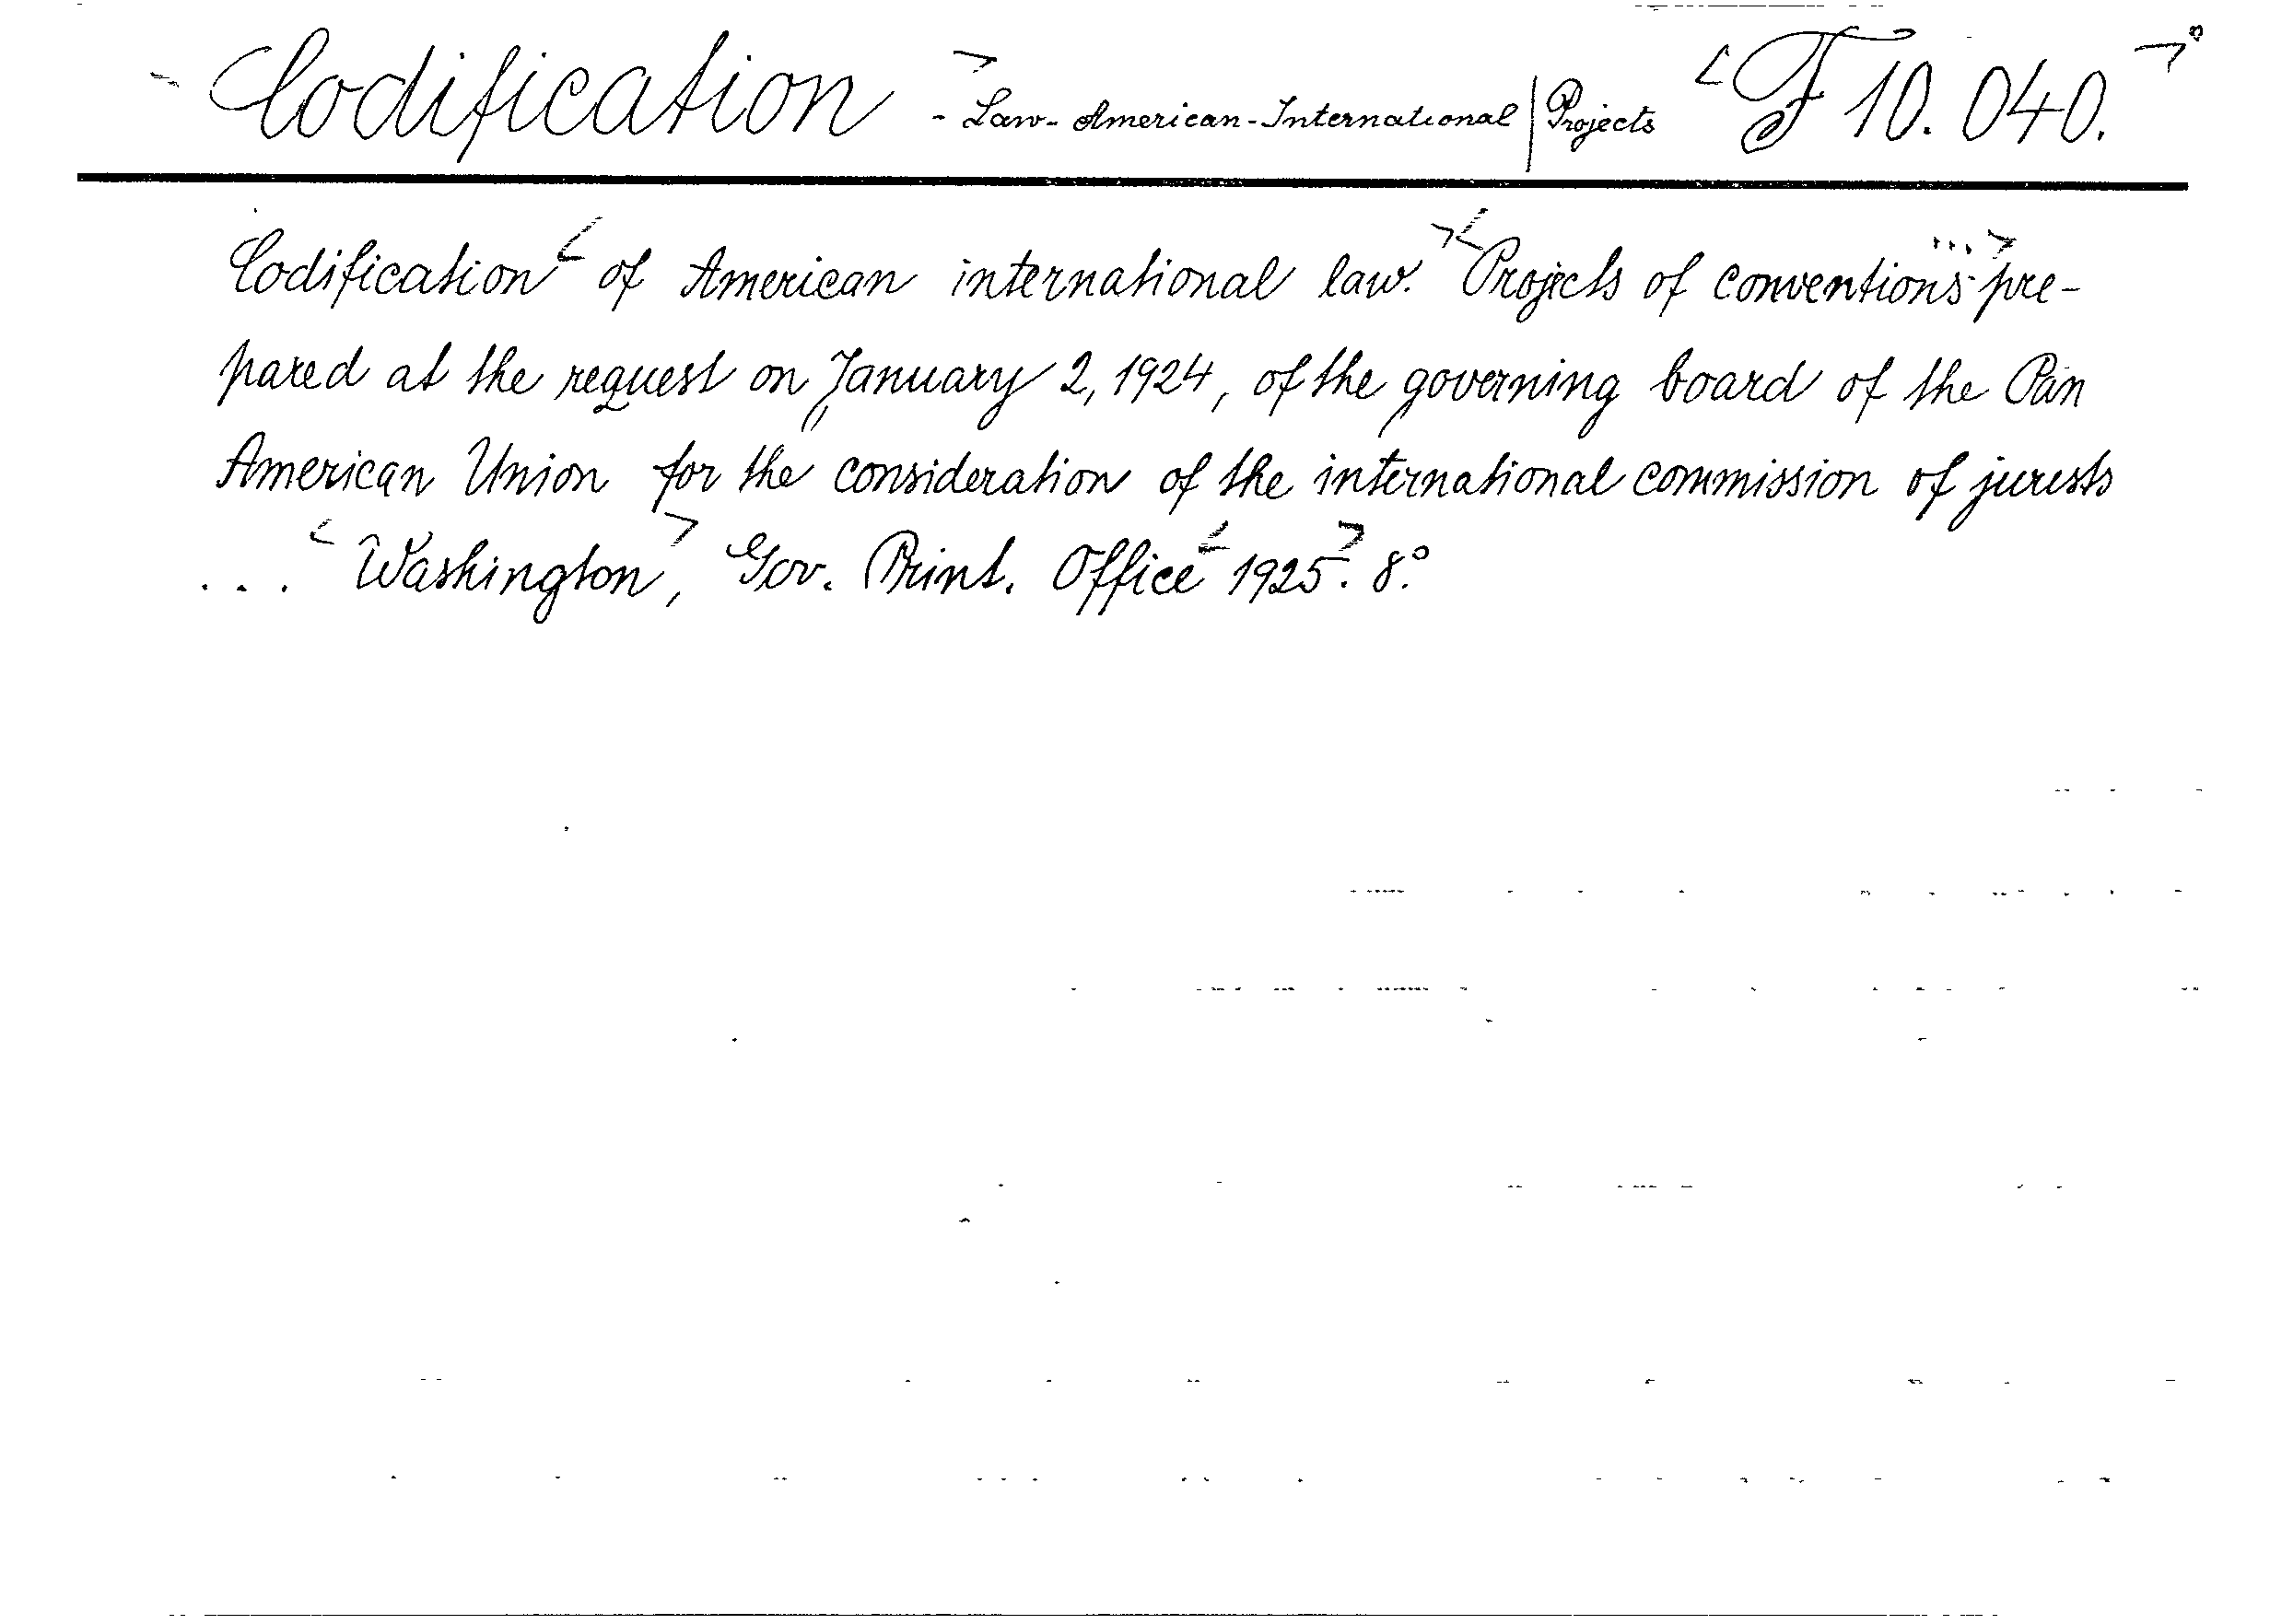 Codification - Law - American - International | Projects F 10.040.
Codification of American international law. Projects of conventions pre-
pared at the request on January 2, 1924, of the governing board of the Pan
American Union for the consideration of the international commission of jurests
... Washington, Gov. Print. Office 1925. 8°.